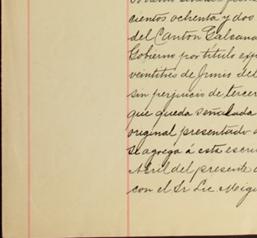 cientos ochenta y dos
del Canton
Gobierno por titulo
veintitres de Junio del
sin perjuicio de tercer
que queda señalada
original presentado
se agrega á esta escri
Abril del presente
con el Sr Lic